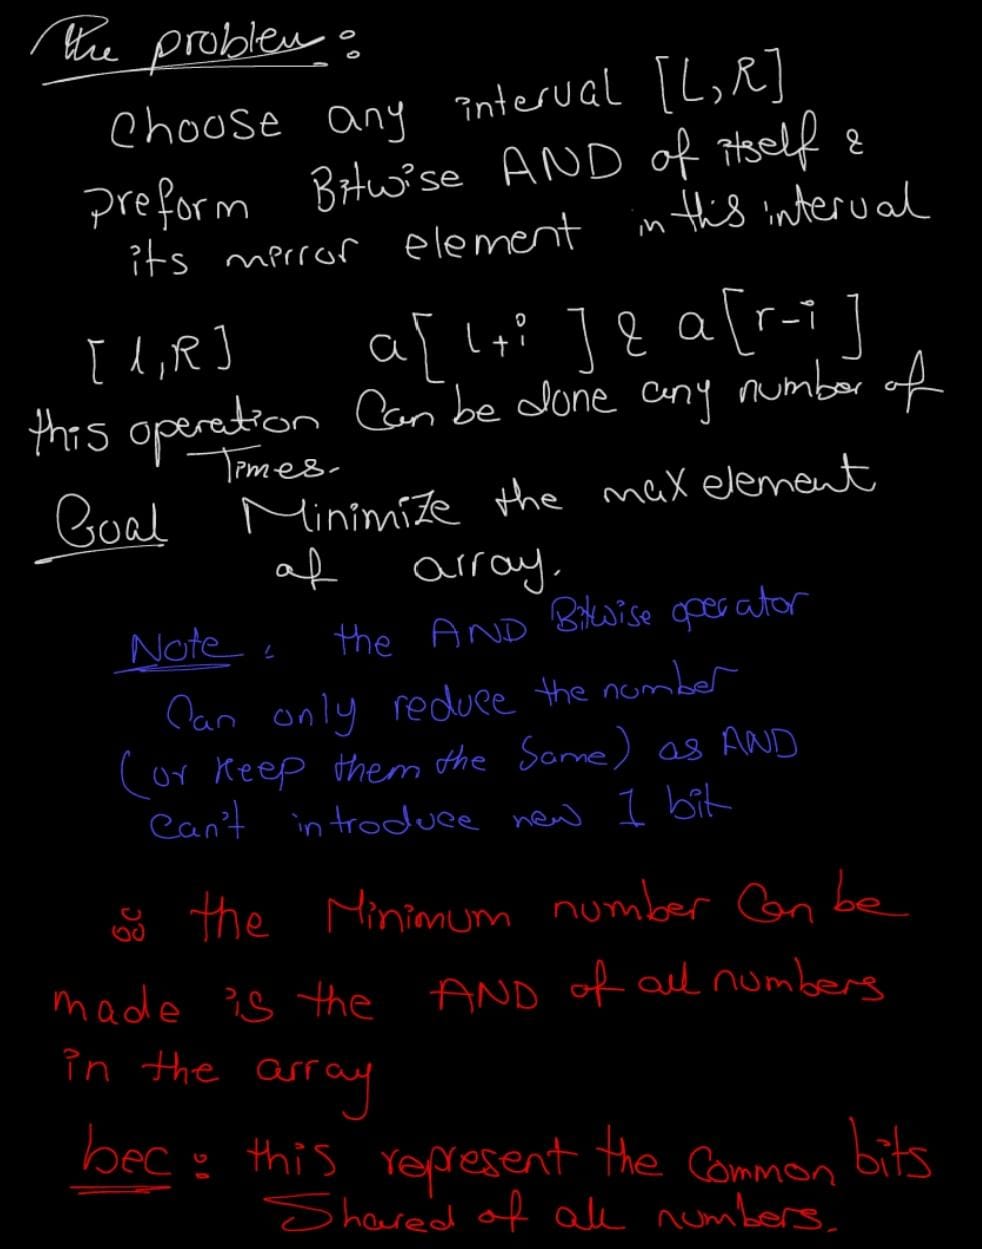 The problem :
Choose any interval [L,R]
preform Bitwise AND of itself &
its mirror element in this interval
[l,R] a[l+i] & a[r-i]
this operation Can be done any number of
Times.
Goal Minimize the max element
of array.
Note : the AND Bitwise operator
Can only reduce the number
(or keep them the same) as AND
can't introduce new 1 bit
the Minimum number Can be
made is the AND of all numbers
in the array
bec : this represent the Common bits
Shared of all numbers.